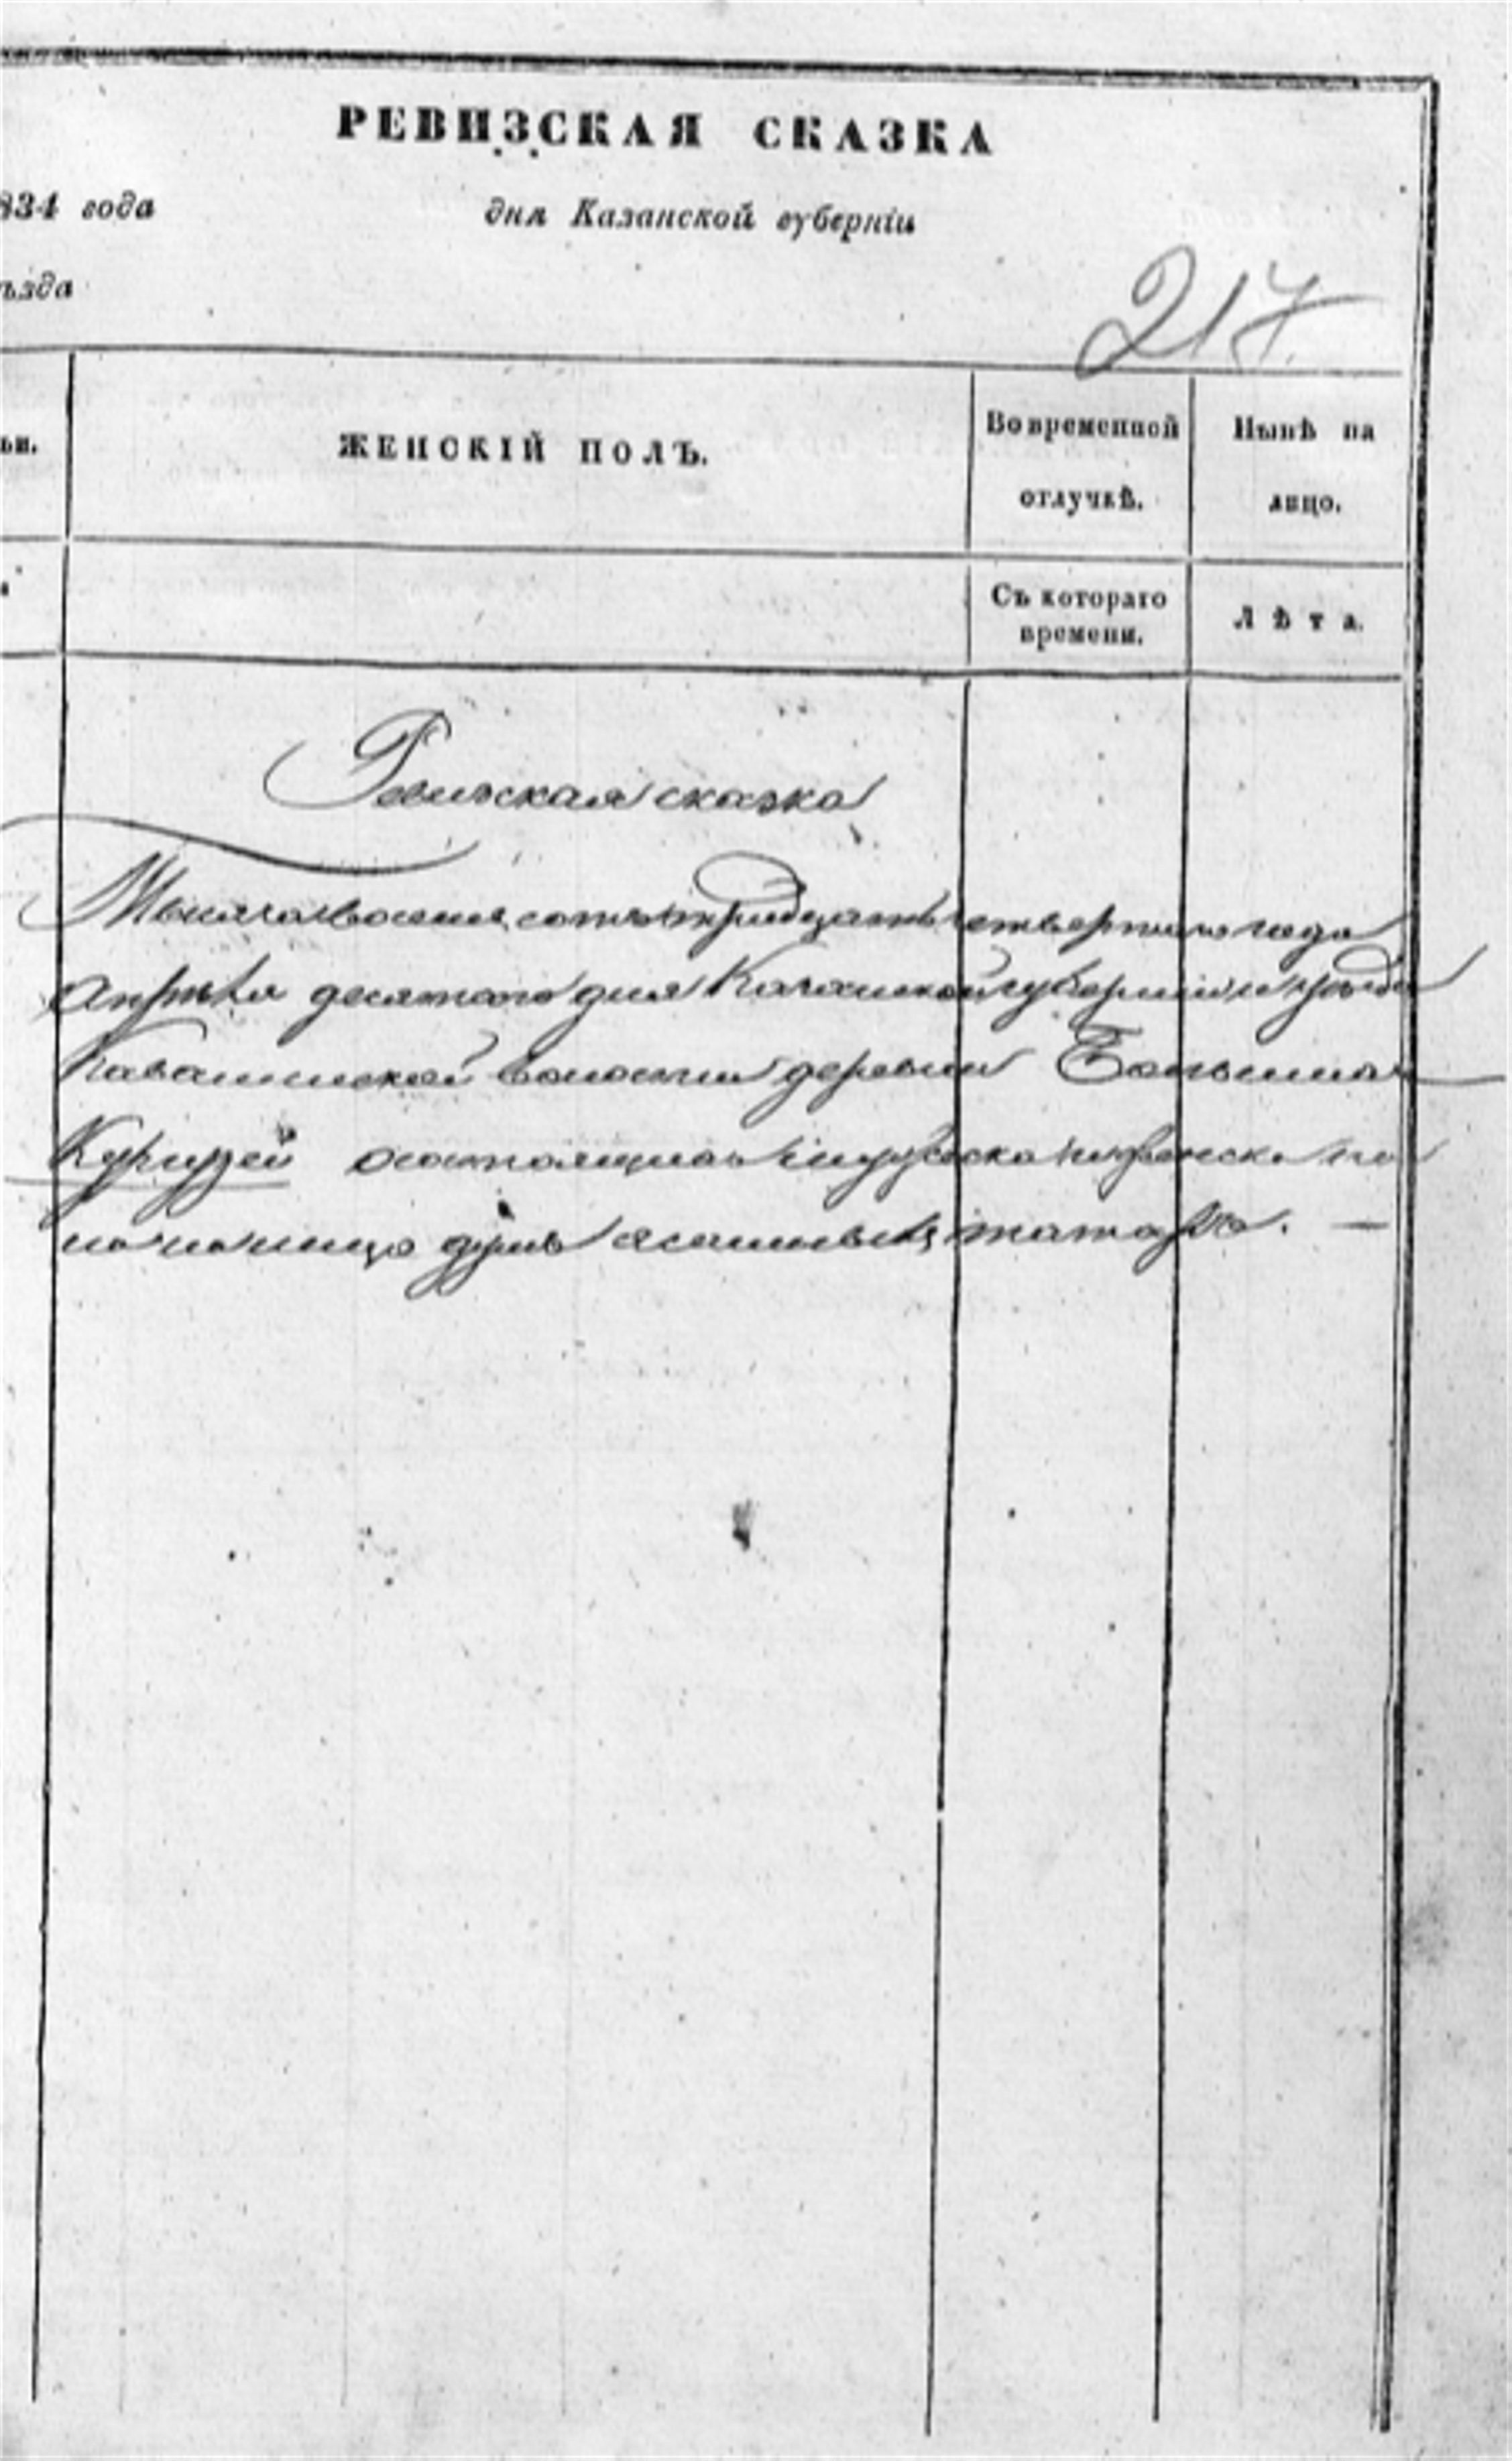 РЕВИЗСКАЯ СКАЗКА
834 года дня Казанской губерніи
ѣзда
217.
ьи.
ЖЕНСКІЙ ПОЛЪ.
Во временной отлучкѣ.
Нынѣ на лицо.
Съ котораго времени.
Лѣта.
Ревизская сказка
Тысяча восемь сотъ тридцать четвертаго года
Апрѣля десятаго дня Казанской губерніи и уѣзда
Кавалинской волости деревни Большихъ
Кургузей о состоящихъ мужеска и женска по
ла на лицо душъ ясашныхъ татаръ. —